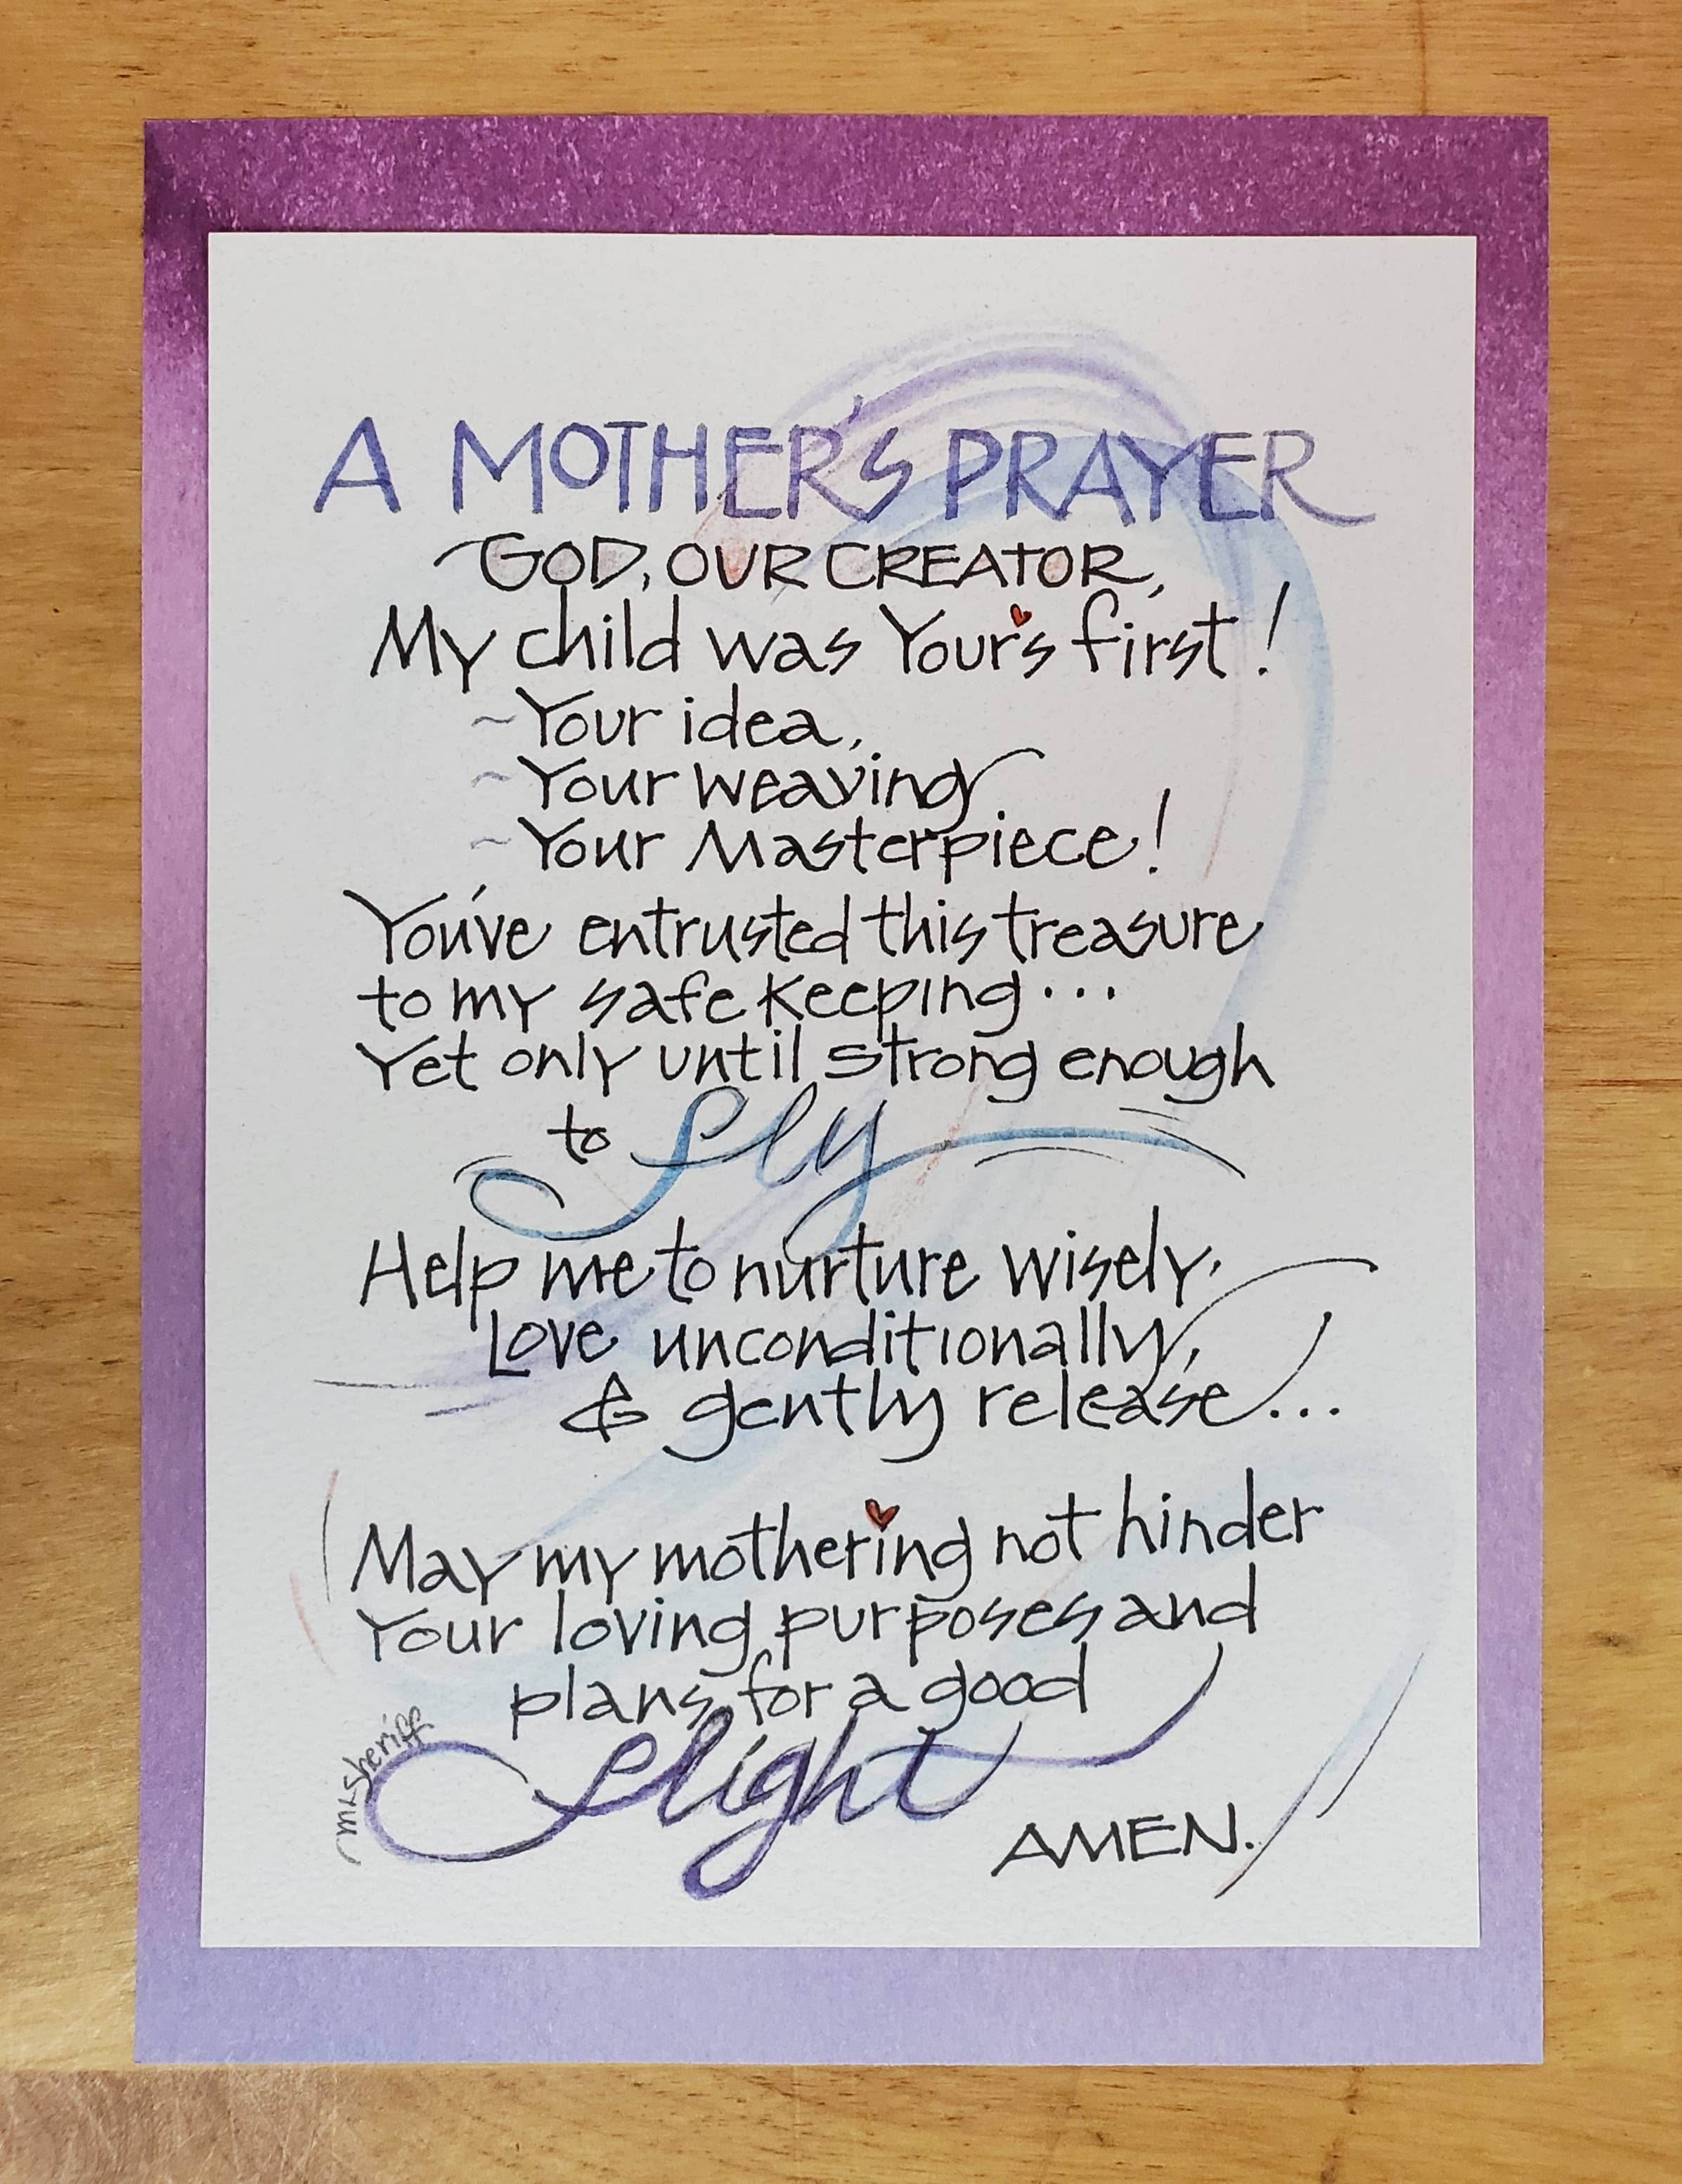 A MOTHER'S PRAYER
GOD, OUR CREATOR,
My child was Your's first!
~Your idea,
~Your weaving,
~Your Masterpiece!
You've entrusted this treasure
to my safe keeping...
Yet only until strong enough
to fly
Help me to nurture wisely,
Love unconditionally,
& gently release...
May my mothering not hinder
Your loving purposes and
plans for a good
flight
AMEN.
mLSheriff